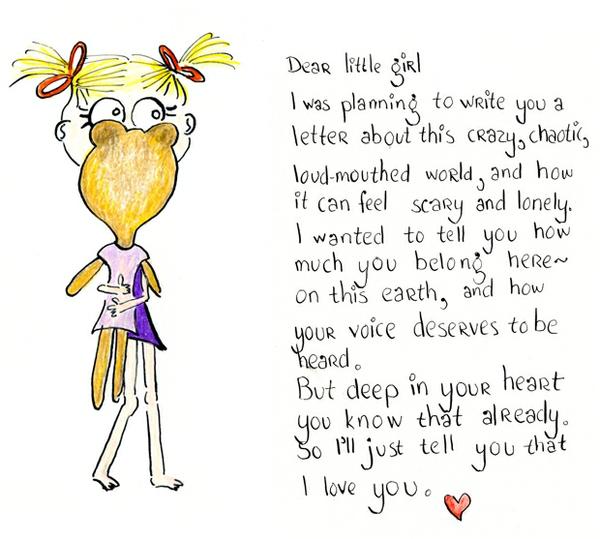 Dear little girl
I was planning to write you a
letter about this crazy, chaotic,
loud-mouthed world, and how
it can feel scary and lonely.
I wanted to tell you how
much you belong here~
on this earth, and how
your voice deserves to be
heard.
But deep in your heart
you know that already.
So I'll just tell you that
I love you.